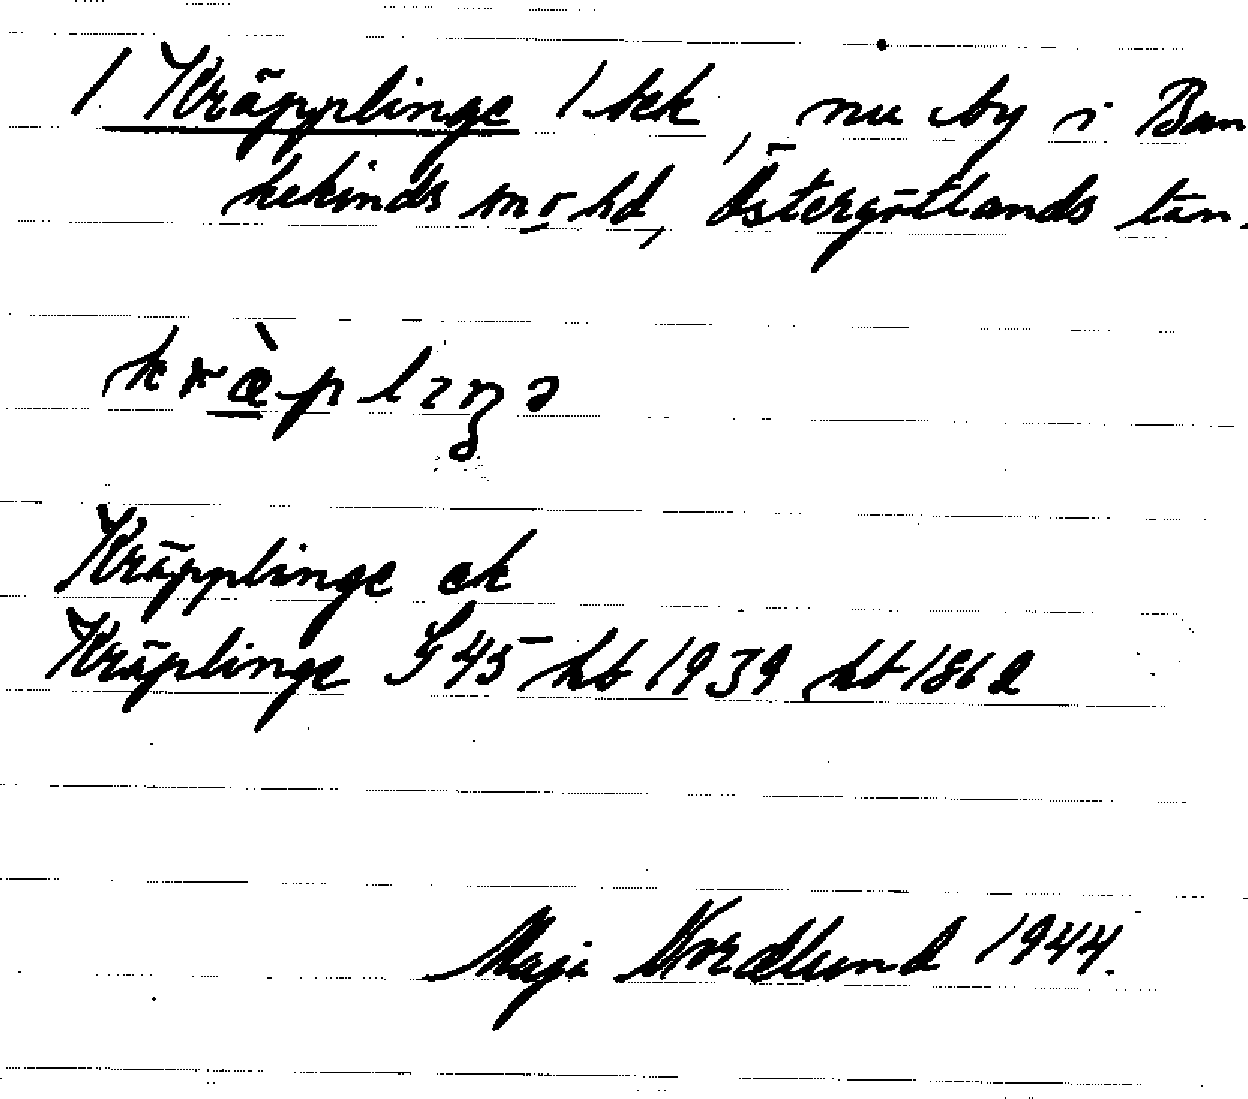 1 Kräpplinge 1 bek, nu by i Ban
kekinds sn o hd, Östergötlands län.
kræ̀plɩŋə
Kräpplinge ek
Kräplinge G 45 hb 1939 hb 1862
Maja Nordlund 1944.